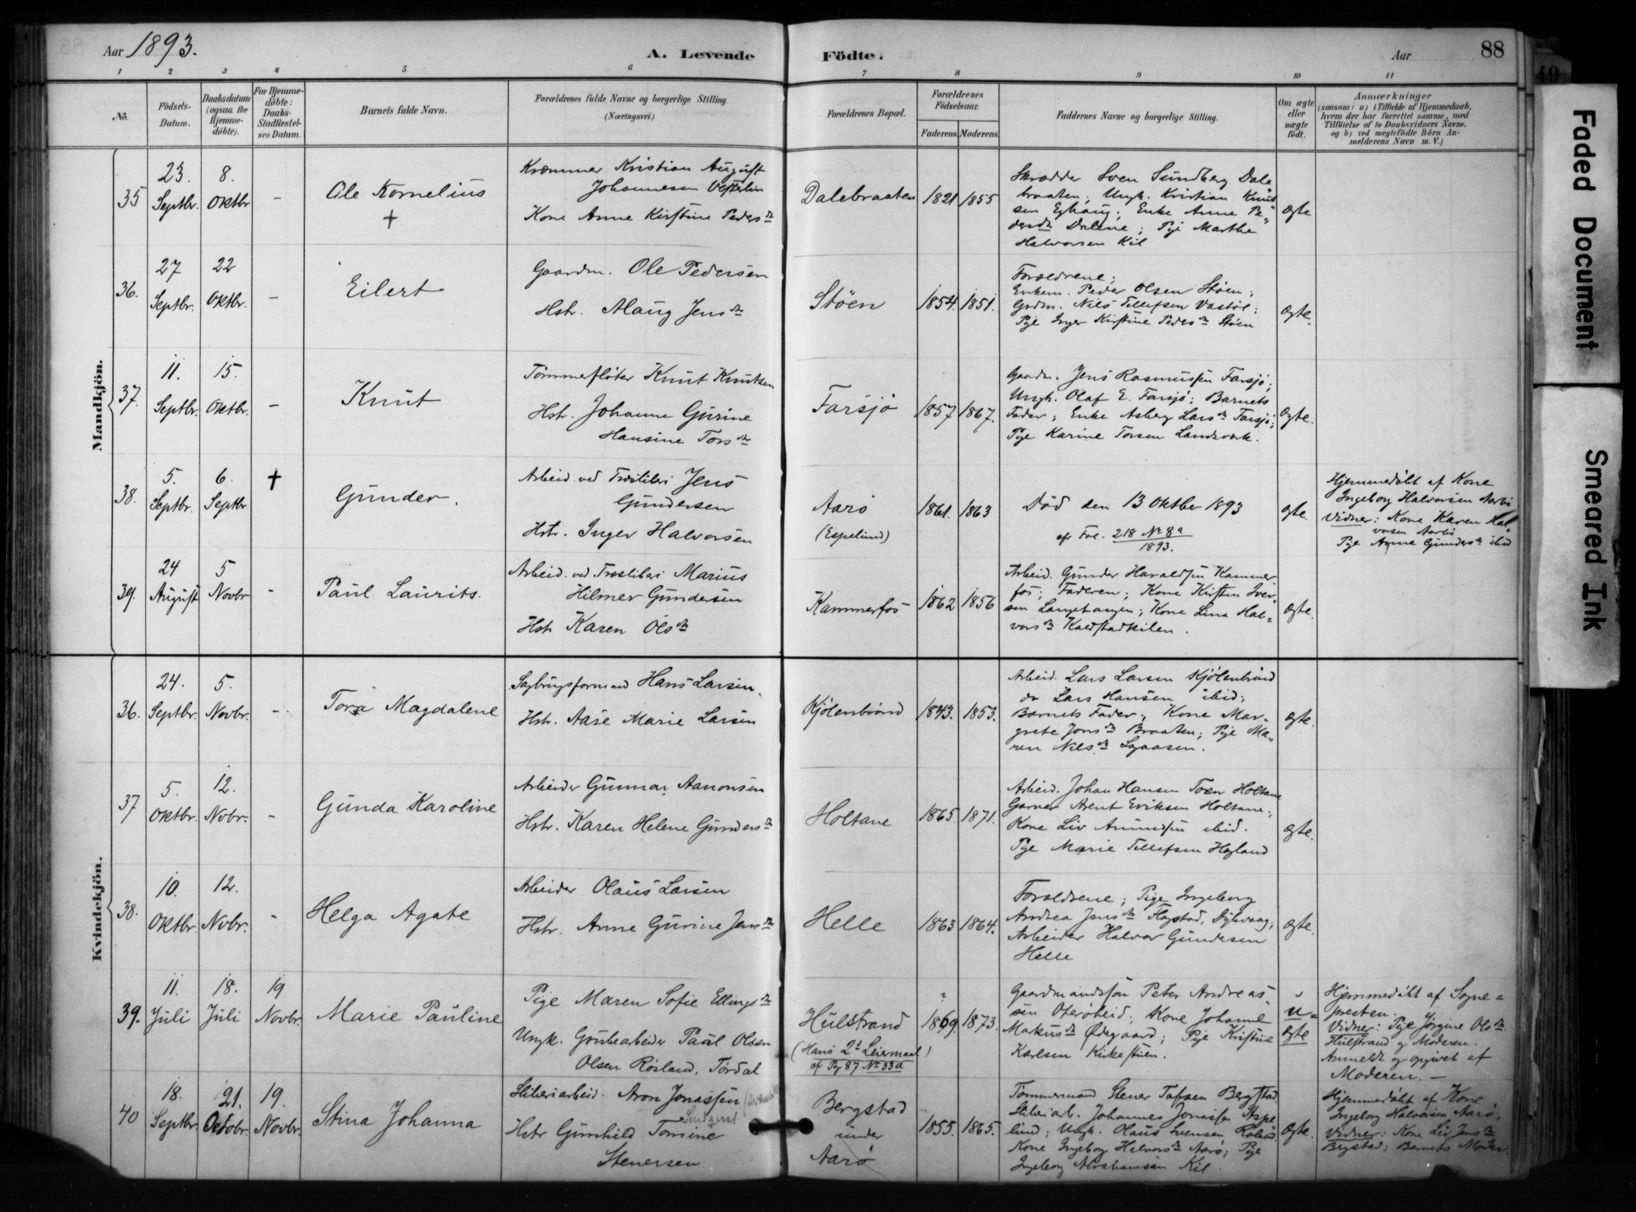 Aar 1893.
A. Levende Födte.
Aar
88
1 2 3 4 5 6 7 8 9 10 11
No.
Födsels-Datum.
Daabsdatum (ogsaa for Hjemme-döbte).
For Hjemme-döbte: Daabs-Stadfæstel-ses Datum.
Barnets fulde Navn.
Forældrenes fulde Navne og borgerlige Stilling.
(Næringsvei.)
Forældrenes Bopæl.
Forældrenes Födselsaar.
Faderens. Moderens.
Faddernes Navne og borgerlige Stilling.
Om ægte eller uægte födt.
Anmærkninger
(saasom: a) i Tilfælde af Hjemmedaab,
hvem der har forrettet samme, med
Tilföielse af to Daabsvidners Navne,
og b) ved uægtefödte Börn An-
melderens Navn m. V.)
Mandkjön.
35 23. Septbr. 8. Oktbr - Ole Kornelius †
Kræmmer Kristian August
Johannesen
Kone Anne Kirstine Pedersdr
Dalebraaten 1821 1855
Skrædder Sven Sundberg Dale
braaten; Ungk. Kristian Knut
sen Eghaug; Enke Anne Pe
dersdr Dalene; Pige Marthe
Halvorsen Kil
Ægte
36. 27 Septbr. 22 Oktbr. - Eilert
Gaardm. Ole Pedersen
Hstr. Maug Jensdr
Stöen 1854. 1851.
Forældrene;
Enkem. Peder Olsen Stöen;
Grdm. Nils Tellefsen Vastöl;
Pige Inger Kirstine Pedersdr Stöen
Ægte.
37. 11. Septbr. 15. Oktbr. - Knut
Tömmerflöter Knut Knutsen
Hst. Johanne Gurine
Hansine Torsdr
Farsjö 1857 1867.
Gaardm. Jens Rasmussen Farsjö;
Ungk. Olaf E. Farsjö; Barnets
Fader; Enke Asberg Larsdr Farsjö;
Pige Karine Torsen Landsverk.
Ægte.
38. 5. Septbr. 6. Septbr † Gunder.
Arbeid. ved Træsliberi Jens
Gundersen
Hstr. Inger Halvorsen
Aarö
(Espelund)
1861. 1863
Död den 13 Oktber 1893
cfr Fol. 218 No 8a
1893.
Ægte.
Hjemmedöbt af Kone
Ingeborg Halvorsen Aarö
Vidner: Kone Karen Hal
vorsen Aarö
Pige Anne Gundersdr ibid
39. 24 August 5 Novbr - Paul Laurits.
Arbeid. ved Træsliberi Marius
Hilmer Gundersen
Hst. Karen Olsdr
Kammerfos 1862 1856
Arbeid. Gunder Haraldsen Kammer
fos; Faderen; Kone Kirsten Iver
sen Langetangen; Kone Lina Hal=
vorsdr Kalstadkilen.
Ægte.
Kvindekjön.
36. 24. Septbr. 5. Novbr. - Tora Magdalene
Sagbrugsformand Hans Larsen.
Hst. Aase Marie Larsen
Kjölenbrönd 1843. 1853.
Arbeid. Lars Larsen Kjölenbrönd
og Lars Hansen ibid;
Barnets Fader; Kone Mar-
grete Jonsdr Braaten; Pige Ma=
ren Nilsdr
Ægte.
37 5. Oktbr. 12. Novbr. - Gunda Karoline
Arbeider Gunnar Aanonsen
Hstr. Karen Helene Gundersdr
Holtane 1865. 1871.
Arbeid. Johan Hansen Toen Holtane
Garver Arent Eriksen Holtane,
Kone Liv Amundsen ibid.
Pige Marie Tellefsen Högland
Ægte.
38. 10. Oktbr. 12. Novbr. - Helga Agate
Arbeider Olaus Larsen
Hstr. Anne Gurine Jensdr
Helle 1863 1864.
Forældrene; Pige Ingeborg
Andrea Jensdr Flagstad, Dybvaag;
Arbeider Halvor Gundersen
Helle
Ægte.
39. 11. Juli 18. Juli 19 Novbr. Marie Pauline
Pige Maren Sofie Ellingsdr
Ungk. Grubearbeider Paul Olsen
Olsen Rösland, Tördal
Hulstrand
(Hans 2d Leiermaal)
cf Pg 87 No 33a
1869 1873.
Gaardmandssön Peter Andreas-
sen Ofteröheid; Kone Johanne
Markusdr Ødegaard; Pige Kristine
Karlsen Kirkestuen.
U=
ægte
Hjemmedöbt af Sogne=
presten.
Vidner: Pige Jörgine Olsdr
Hulstrand og Moderen.
Anmeldt og opgivet af
Moderen. -
40 18. Septbr. 21. Octobr. 19. Novbr. Stina Johanna
Sliberiarbeid. Aron Jonassen
Hstr Gunhild Tomine
Stenersen
Bergstad
under
Aarö
1855. 1865.
Tömmermand Stener Tofsen Bergstad
Sliberiarb. Johannes Jonassen Espe
lund; Ungk. Olaus Svensen,
Kone Ingeborg Halvorsdr Aarö; Pige
Ingeborg Abrahamsen Kil.
Ægte.
Hjemmedöbt af Kone
Ingeborg Halvorsen Aarö,
Vidner: Kone Liv Jensdr
Bergstad; Barnets Moder.
Faded Document
Smeared Ink
49